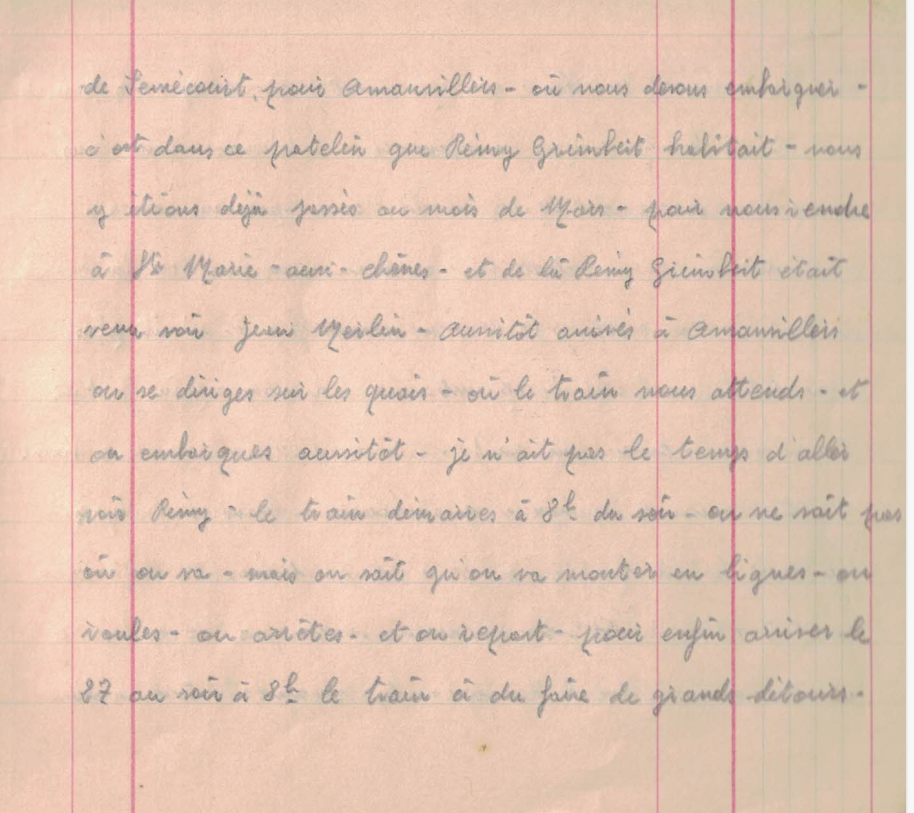 de Semécourt, pour Amanvillers - où nous devons embarquer -
c'est dans ce patelin que Rémy Grimbeit habitait - nous
y étions déjà passés au mois de Mars - pour nous rendre
à Ste Marie - aux - chênes - et de là Rémy Grimbeit était
venu voir Jean Merlin - Aussitôt arrivés à Amanvillers
on se diriges sur les quais - où le train nous attends - et
on embarques aussitôt - je n'ait pas le temps d'aller
voir Rémy - le train démarres à 8h du soir - on ne sait pas
où on va - mais on sait qu'on va monter en lignes - on
roules - on arrêtes - et on repart - pour enfin arriver le
27 au soir à 8h le train à du faire de grands détours -